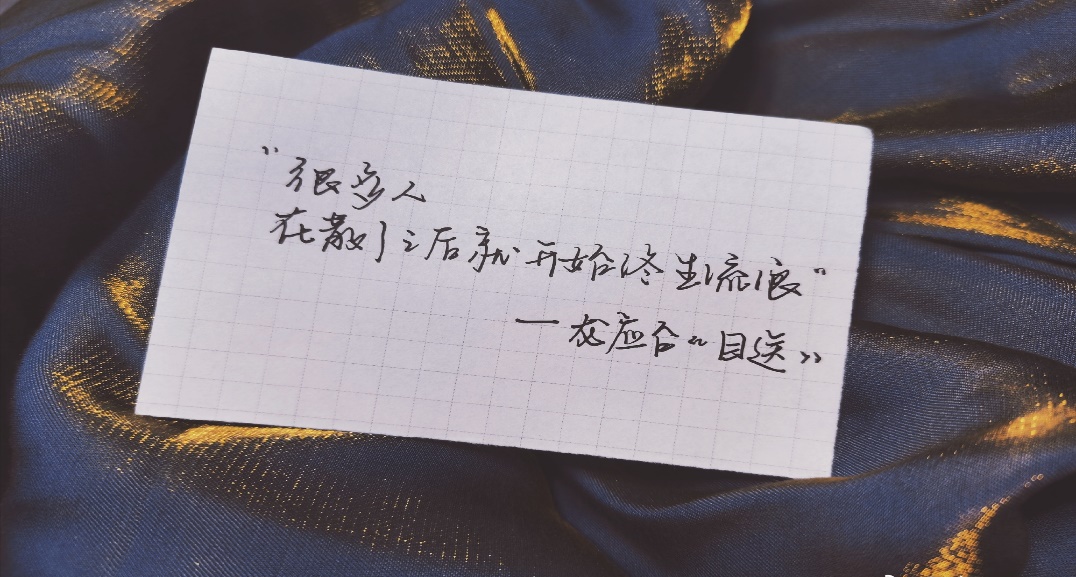 “很多人
在散了之后就开始终生流浪”
—龙应台《目送》